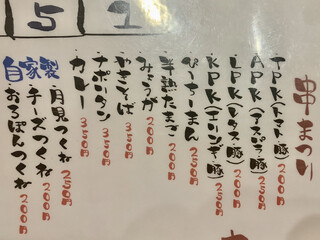 串まつり
TPK(トマト豚) 200円
APK(アスパラ豚) 250円
LPK(レタス豚) 200円
KPK(エリンギ豚) 200円
ぴーちーまん 250円
半熟たまご 200円
みょうが 200円
やきそば 350円
ナポリタン 350円
カレー 350円
自家製
月見つくね 250円
チーズつくね 200円
おろぽんつくね 200円
5 1